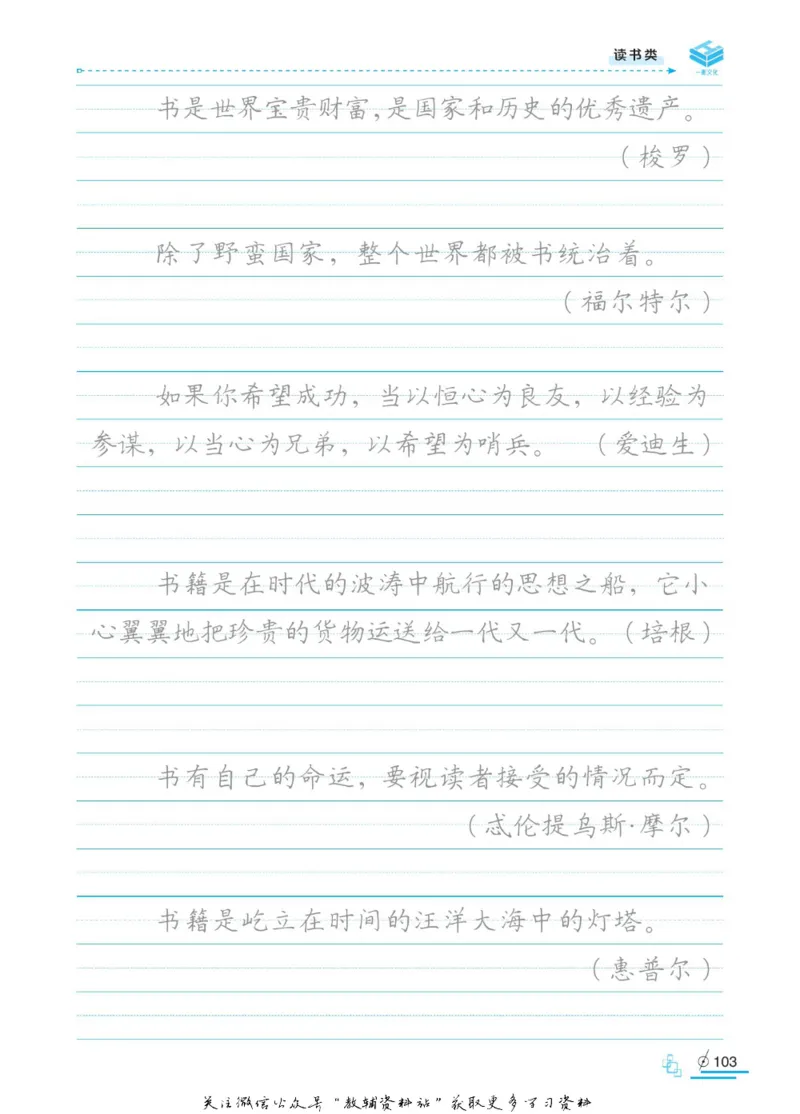 读书类
一素文化
书是世界宝贵财富，是国家和历史的优秀遗产。
（梭罗）
除了野蛮国家，整个世界都被书统治着。
（福尔特尔）
如果你希望成功，当以恒心为良友，以经验为
参谋，以当心为兄弟，以希望为哨兵。 （爱迪生）
书籍是在时代的波涛中航行的思想之船，它小
心翼翼地把珍贵的货物运送给一代又一代。（培根）
书有自己的命运，要视读者接受的情况而定。
（忒伦提乌斯·摩尔）
书籍是屹立在时间的汪洋大海中的灯塔。
（惠普尔）
103
关注微信公众号“教辅资料站”获取更多学习资料